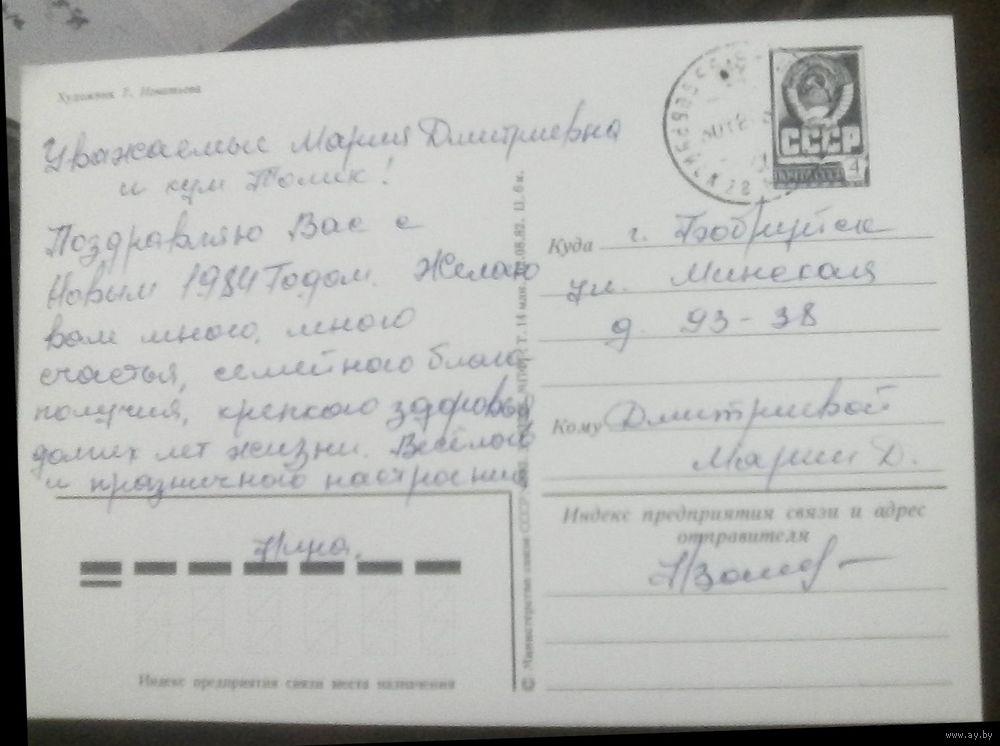 Художник Г.
Уважаемые Мария Дмитриевна
и кум Толик!
Поздравляю Вас с
Новым 1984 Годом. Желаю
вам много, много
счастья, семейного благо-
получия, крепкого здоровья
долгих лет жизни. Весёлого
и празничного настроения
Нина.
Индекс предприятия связи места назначения
© Министерство связи СССР
.08.82. П. 6 к.
СССР
4
Куда г. Бобруйск
ул. Минская
д. 93-38
Кому Дмитриевой
Марии Д.
Индекс предприятия связи и адрес
отправителя
www.ay.by